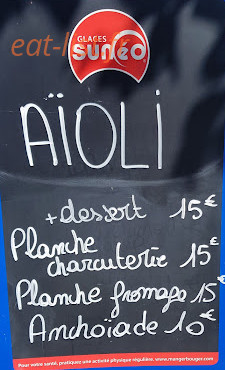 GLACES
sunéo
AÏOLI
+ dessert 15€
Planche
charcuterie 15€
Planche fromage 15€
Anchoïade 10€
Pour votre santé, pratiquez une activité physique régulière. www.mangerbouger.com